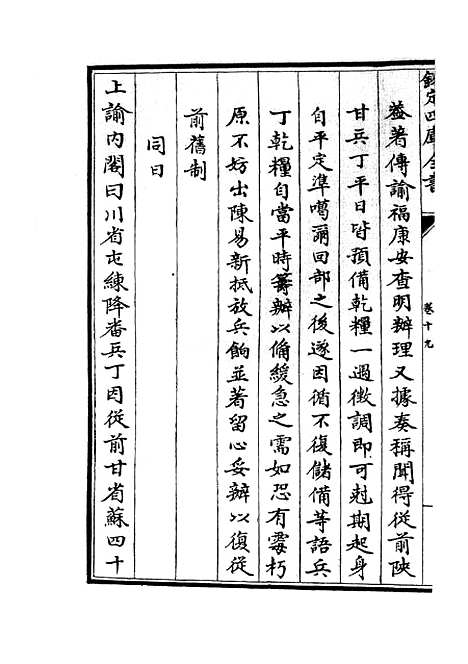 欽定四庫全書
卷十九
益著傳諭福康安查明辦理又據奏稱聞得從前陜
甘兵丁平日皆預備乾糧一遇徵調即可尅期起身
自平定準噶爾回部之後遂因循不復儲備等語兵
丁乾糧自當平時籌辦以備緩急之需如恐有霉朽
原不妨出陳易新抵放兵餉並著留心妥辦以復從
前舊制
同日
上諭內閣曰川省屯練降番兵丁因從前甘省蘇四十